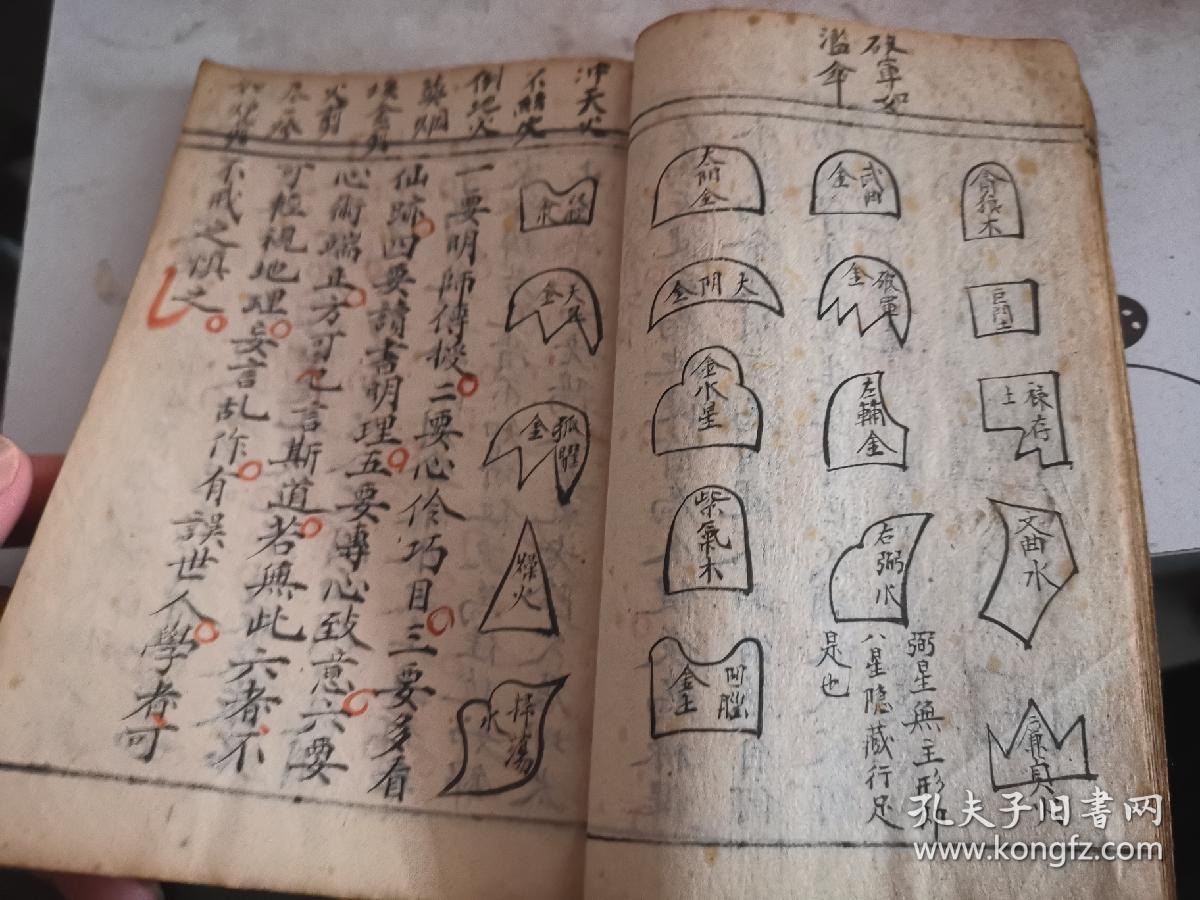 破軍如
濫伞
貪狼木
巨門土
祿存土
文曲水
廉貞火
武曲金
破軍金
左輔金
右弼水
弼星無主形
八星隐藏行足
是也
太阳金
太阴金
金水星
紫氣木
凹腦金土
冲天火
倒地火
孤曜金
燥火
掃蕩水
一要明師傳授二要心伶巧目三要多看
仙跡四要讀書明理五要專心致意六要
心術端正方可已言斯道若無此六者不
可輕視地理妄言乱作有誤世人學者可
不戒之慎之
孔夫子旧书网
www.kongfz.com